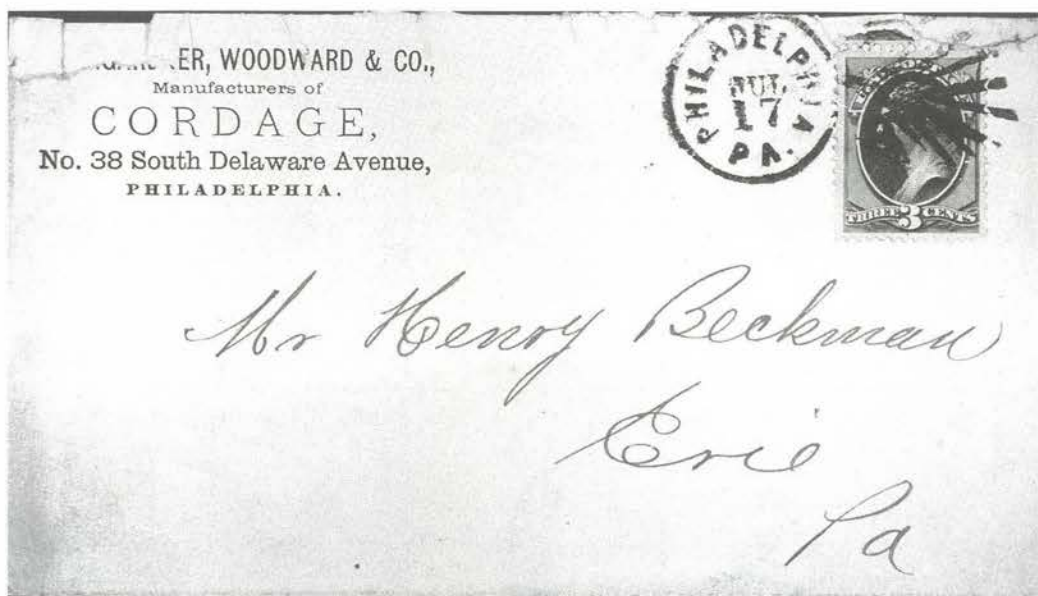 WOODWARD & CO.,
Manufacturers of
CORDAGE,
No. 38 South Delaware Avenue,
PHILADELPHIA.
PHILADELPHIA
JUL
17
PA.
THREE 3 CENTS
Mr Henry Beckman
Erie
Pa